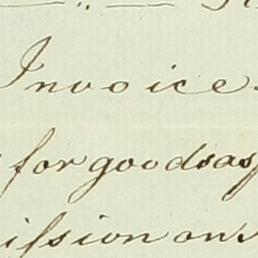 Invoice
for goods as
ission on